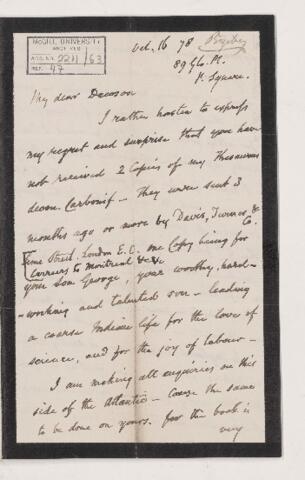 McGILL UNIVERSITY
ARCHIVES
ACC. NO. 2211/63
REF. 47
Oct. 16 78 Bigsby
89 Glo. Pl.
P. Square.
My dear Dawson
I rather hasten to express
my regret and surprise that you have
not received 2 Copies of my Thesaurus
devon. Carbonif – They were sent 3
months ago or more by Davis, Turner & Co.
Lime Street, London E.C. one Copy being for
Carriers to Montreal &c &c
your son George, your worthy, hard-
-working and talented son – leading
a coarse Indian life for the love of
science, and for the joy of labour –
I am making all enquiries on this
side of the Atlantic – cause the same
to be done on yours. for the book is
very